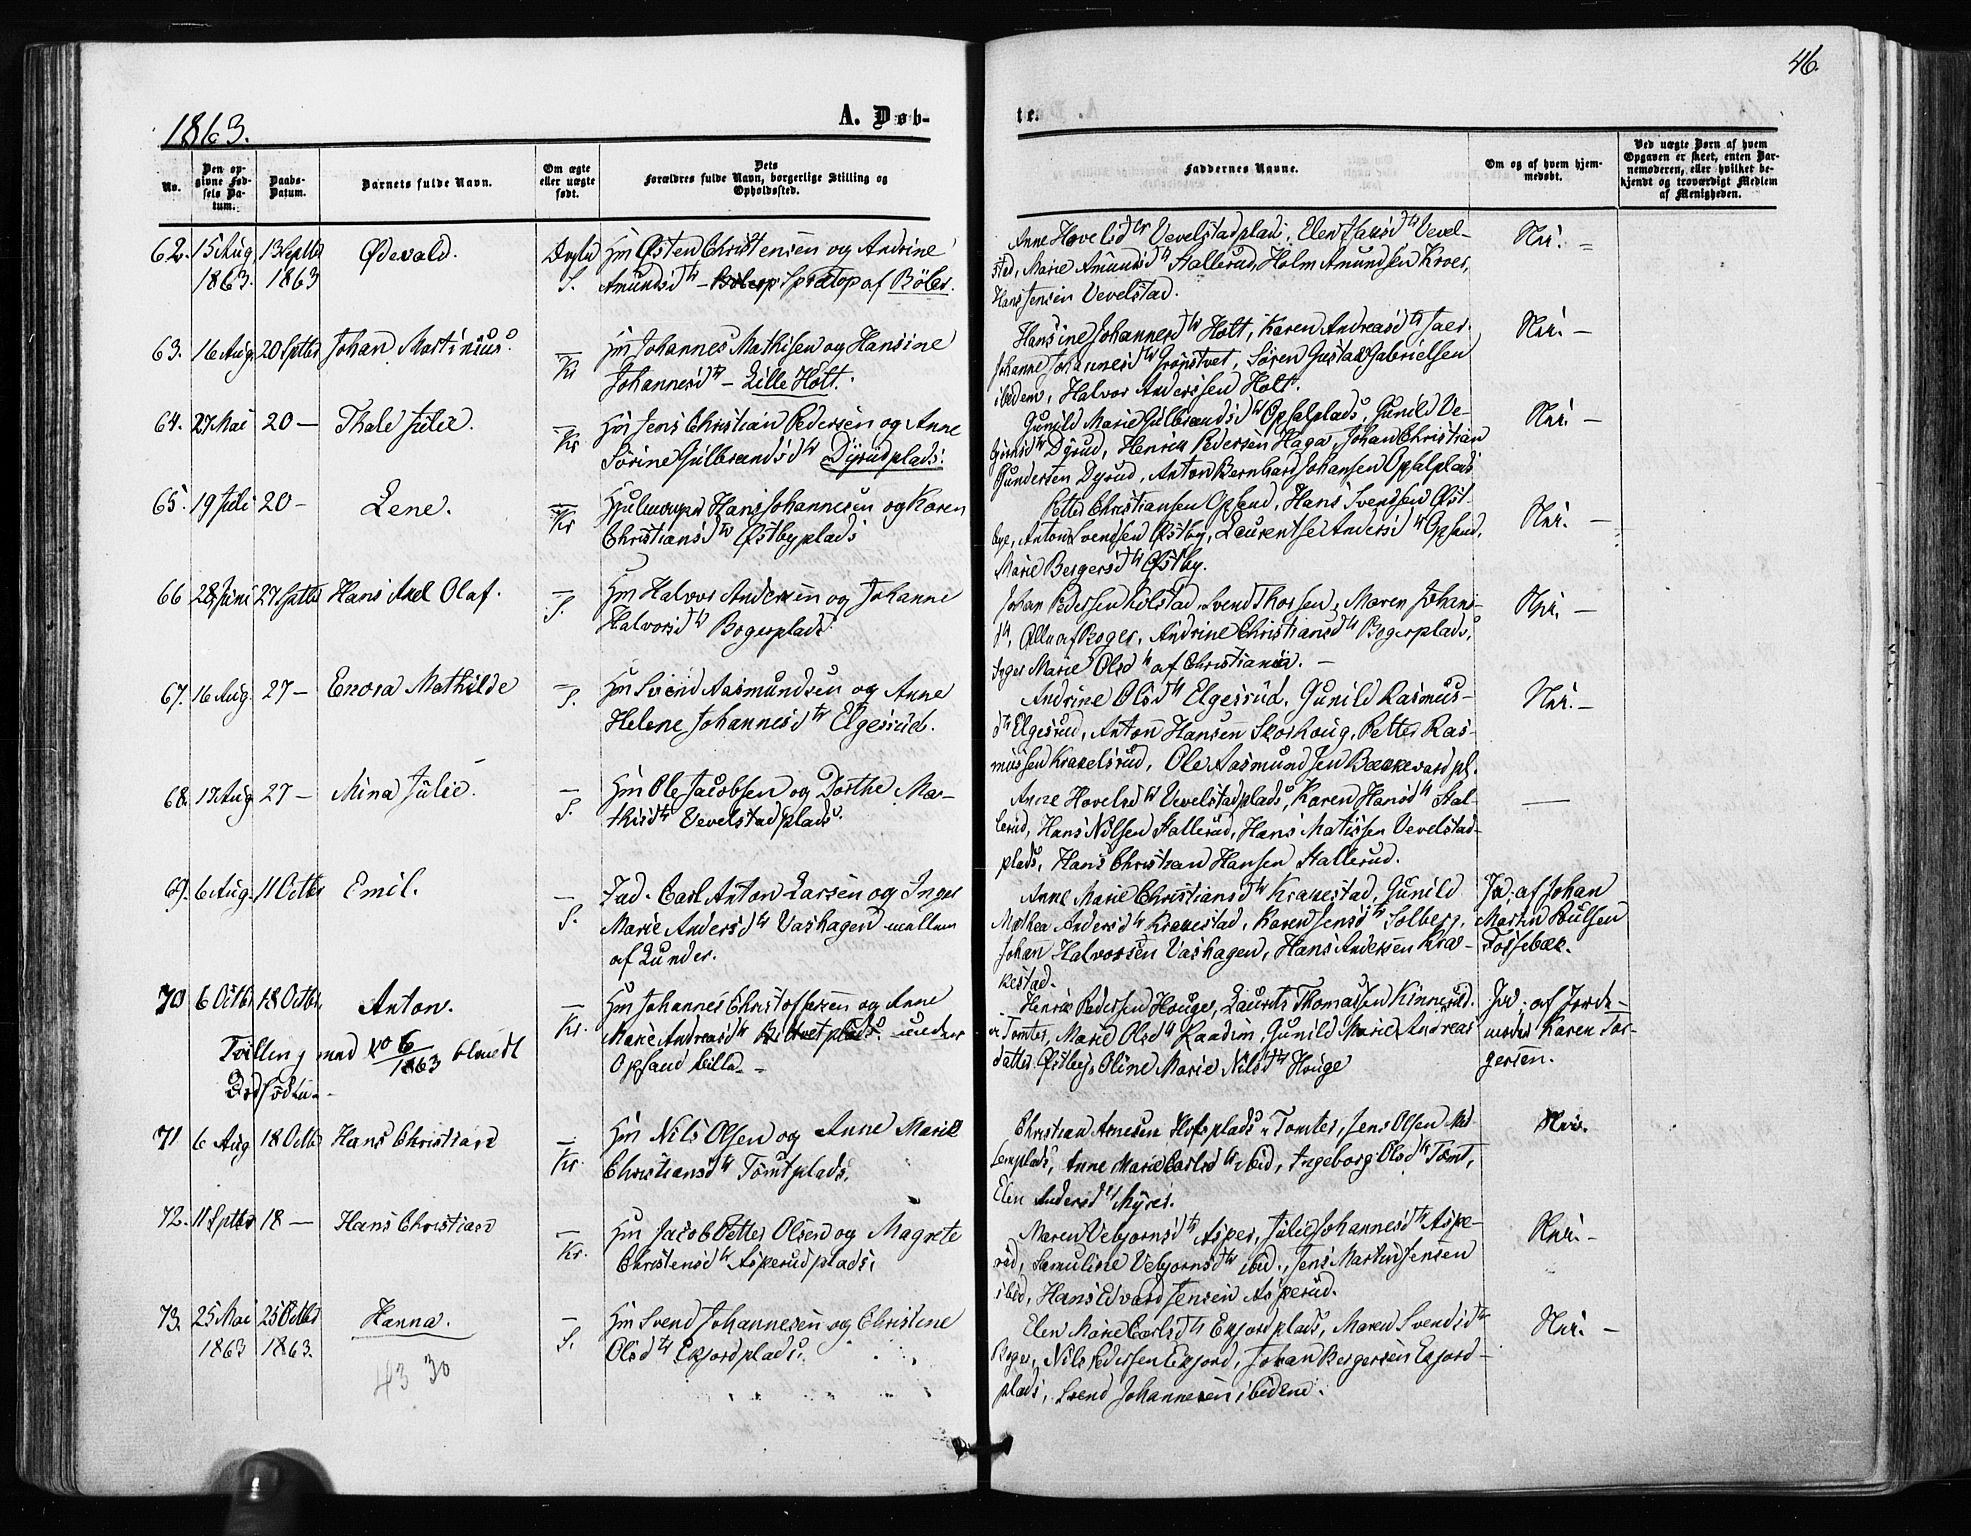 46.
1863.
A. Døb-
te.
No.
Den opgivne Fødsels Datum.
Daabs-Datum.
Barnets fulde Navn.
Om ægte eller uægte født.
Dets Forældres fulde Navn, borgerlige Stilling og Opholdssted.
Faddernes Navne.
Om og af hvem hjemmedøbt.
Ved uægte Børn af hvem Opgaven er skeet, enten Barnemoderen, eller hvilket bekjendt og troværdigt Medlem af Menigheden.
62. 15 Aug 13 Septbr Ødevald. Hm Østen Christensen og Andrine
1863. 1863 S. Amundsdtr af Böler.
Anne Hovelsdtr Vevelstadplads, Elen Hansdtr Vevel-
stad, Marie Amundsdtr Hallerud, Holm Amundsen Kroer,
Hans Jensen Vevelstad.
Nei. -
63. 16 Aug 20 Septbr Johan Martinius. — Hm Johannes Mathisen og Hansine
Kr Johannesdtr - Lille Holt.
Hansine Johannesdtr Holt, Karen Andreasdtr Jaer.
Johanne Johannesdtr Grønstvet, Søren Gustav Gabrielsen
ibidem, Halvor Anderssen Holt.
Nei. -
64. 27 Mai 20 - Thale Julie. — Hm Jens Christian Pedersen og Anne
Kr Sørine Gulbrandsdtr Dyrudplads.
Gunild Marie Gulbrandsdtr Opsalplads, Gunild Ve-
Dyrud, Henrik Pedersen Haga, Johan Christian
Gundersen Dyrud, Anton Bernhard Johansen Opsalplads
Nei. -
65. 19 Juli 20 - Lene. — Hans Johannesen og Karen
Kr Christiansdtr Østbyplads
Petter Christiansen Opsand, Hans Svendsen Øst-
bye, Anton Svendsen Østby, Laurentse Andersdtr Opsand,
Marie Bergersdtr Østby.
Nei. -
66 28 Juni 27 Septbr Hans Axel Olaf. — Hm Halvor Andersen og Johanne
S. Halvorsdtr Bogerplads
Johan Pedersen Svend Thorsen, Maren Johans-
dtr, Alle af Boger, Andrine Christiansdtr Bogerplads,
Inger Marie Olsdtr af Christiania. -
Nei. -
67. 16 Aug 27 - Enora Mathilde — Hm Svend Aasmundsen og Anne
S. Helene Johannesdtr Elgesrud.
Andrine Olsdtr Elgesrud, Gunild Rasmus-
dtr Elgesrud, Anton Hansen Skorhoug, Petter Ras-
mussen Krakelsrud, Ole Aasmundsen Bækkevard pl.
Nei. -
68. 17 Aug 27 - Mina Julie. — Hm Ole Jacobsen og Dorthe Ma-
S. thisdtr Vevelstadplads.
Anne Hovelsdtr Vevelstadplads, Karen Hansdtr Hal-
lerud, Hans Nilsen Hallerud, Hans Matissen Vevelstad-
plads, Hans Christian Hansen Hallerud.
—
69. 6 Aug. 11 Octbr Emil. — Fad. Carl Anton Larsen og Inger
S. Marie Andersdtr Vashagen mellem
af Lunder.
Anne Marie Christiansdtr Krakestad, Gunild
Mathea Andersdtr Krakestad, Karen Jensdtr Solberg,
Johan Halvorsen Vashagen, Hans Andersen Kra-
kestad.
Ja. af Johan
Martin Poulsen
Fossebæk.
70 6 Octbr 18 Octbr Anton. — Hm Johannes Christoffersen og Anne
Kr. Marie Andreasdtr under
Tvilling med No 6/1863 blandt
Opsand lille. -
Dødfødte. -
Henrik Pedersen Houger, Laurits Thomassen Kinnerud.
v Tomter, Marie Olsdtr Raadim, Gunild Marie Andreas
datter Østbye, Oline Marie Nilsdtr Houge
Ja. af Jorde-
moder Karen Tor-
gersen.
71 6 Aug 18 Octbr Hans Christian — Hm Nils Olsen og Anne Marie
Kr. Christiansdtr Tomtplads.
Christian Arnesen Hofsplads v Tomter, Jens Olsen
Lemplads, Anne Marie Carlsdtr ibid, Ingeborg Olsdtr Tomt,
Elen Andersdtr Myrer.
Nei.
72. 11 Septbr 18 — Hans Christian — Hm Jacob Petter Olsen og Magrete
Kr. Christensdtr Asperudplads.
Maren Vebjornsdtr Asper, Julie Johannesdtr Aspe-
rud, Samuline Vebjornsdtr ibid., Jens Martin Jensen
ibid, Hans Edvard Jensen Asperud.
Nei. -
73. 25 Mai 25 Octbr Hanna. — Hm Svend Johannesen og Christine
1863 1863. S. Olsdtr Exjordplads.
43 30
Elen Marie Carlsdtr Exjordplads, Maren Svendsdtr
Boger, Nils Pedersen Exjord, Johan Bergersen Exjord-
plads, Svend Johannesen ibidem.
Nei. -